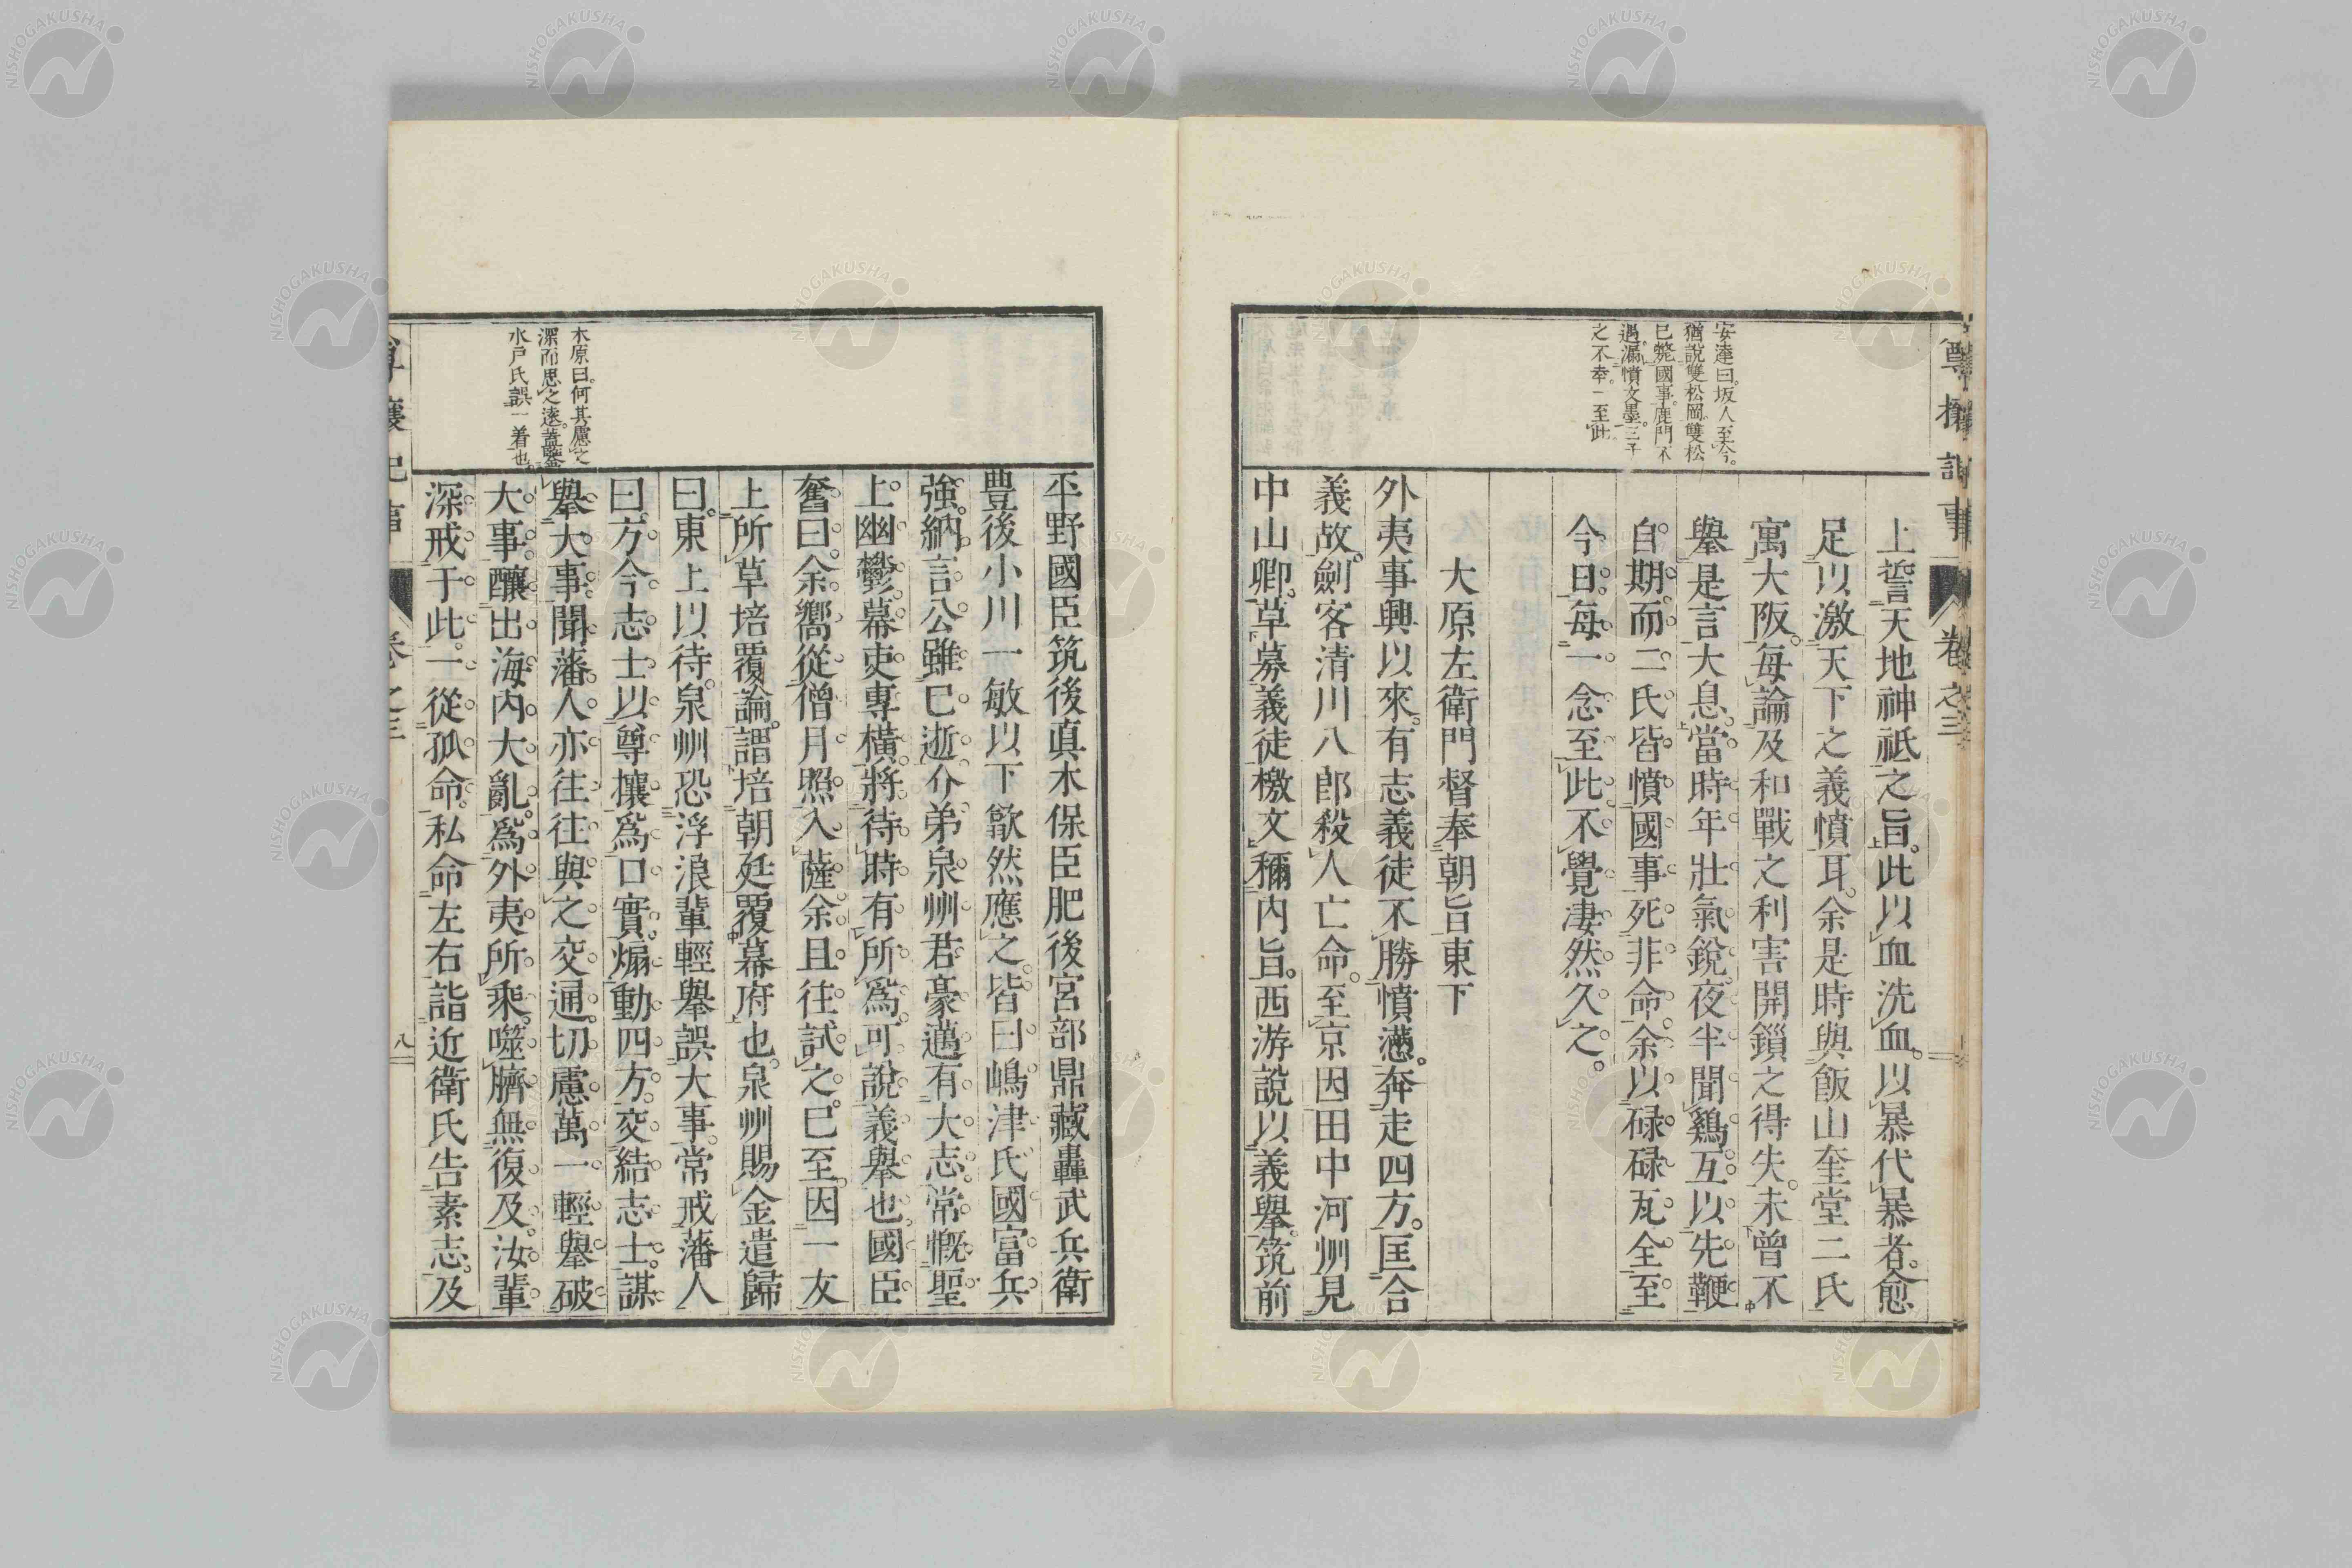 尊攘記事
卷之三
安達曰。坂人至今。
猶說雙松岡。雙松
已斃國事。鹿門不
遇。漏憤文墨。三子
之不幸。一至此
上誓天地神祇之旨。此以血洗血。以暴代暴者。愈
足以激天下之義憤耳。余是時與飯山奎堂二氏
寓大阪。每論及和戰之利害開鎖之得失。未曾不
擧是言大息。當時年壯氣銳。夜半聞鷄。互以先鞭
自期。而二氏皆憤國事死非命。余以碌碌瓦全至
今日。每一念至此。不覺凄然久之。
大原左衛門督奉朝旨東下
外夷事興以來。有志義徒不勝憤懣。奔走四方。匡合
義故。劍客清川八郎殺人亡命。至京因田中河州見
中山卿。草募義徒檄文稱内旨。西游說以義擧。筑前
平野國臣筑後眞木保臣肥後宮部鼎藏轟武兵衛
豊後小川一敏以下歙然應之。皆曰嶋津氏國富兵
強。納言公雖已逝。介弟泉州君豪邁有大志。常慨聖
上幽鬱。幕吏專橫。將待時有所爲。可說義擧也。國臣
奮曰。余嚮從僧月照入薩。余且往試之。已至。因一友
上所草培覆論。謂培朝廷覆幕府也。泉州賜金遣歸
曰。東上以待。泉州恐浮浪輩輕擧誤大事。常戒藩人
曰。方今志士以尊攘爲口實。煽動四方。交結志士。謀
擧大事。聞藩人亦往往與之交通。切慮萬一輕擧破
大事。釀出海内大亂。爲外夷所乘。噬臍無復及。汝輩
深戒于此。一從孤命。私命左右詣近衛氏告素志。及
木原曰。何其慮之
深而思之遠。蓋鑒
水戸氏誤一着也。
尊攘記事
卷之三
八